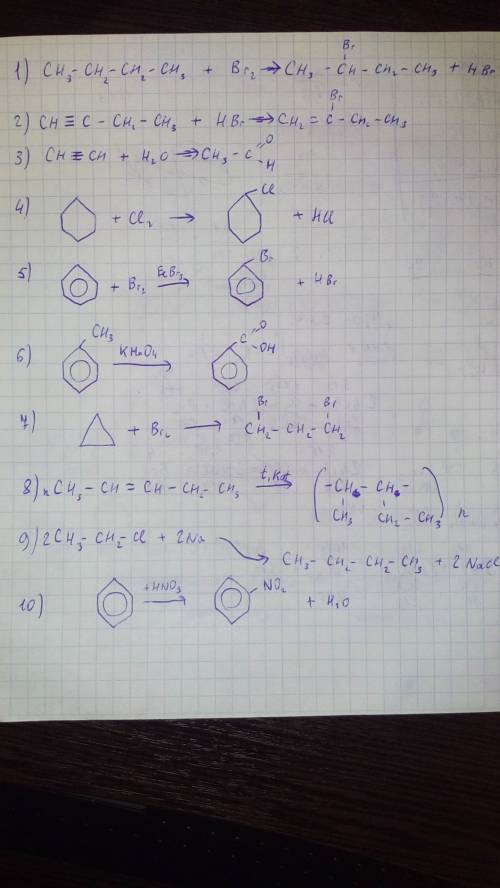 Br
1) CH₃ - CH₂ - CH₂ - CH₃ + Br₂ → CH₃ - CH - CH₂ - CH₃ + HBr
Br
2) CH ≡ C - CH₂ - CH₃ + HBr → CH₂ = C - CH₂ - CH₃
3) CH ≡ CH + H₂O → CH₃ - C
O
H
4) + Cl₂ → Cl + HCl
5) + Br₂ FeBr₃ → Br + HBr
6) CH₃ KMnO₄ → C O OH
Br Br
7) + Br₂ → CH₂ - CH₂ - CH₂
8) nCH₃ - CH = CH - CH₂ - CH₃ t, Kat → ( - CH - CH - )
CH₃ CH₂ - CH₃ n
9) 2CH₃ - CH₂ - Cl + 2Na
→ CH₃ - CH₂ - CH₂ - CH₃ + 2NaCl
10) +HNO₃ → NO₂ + H₂O